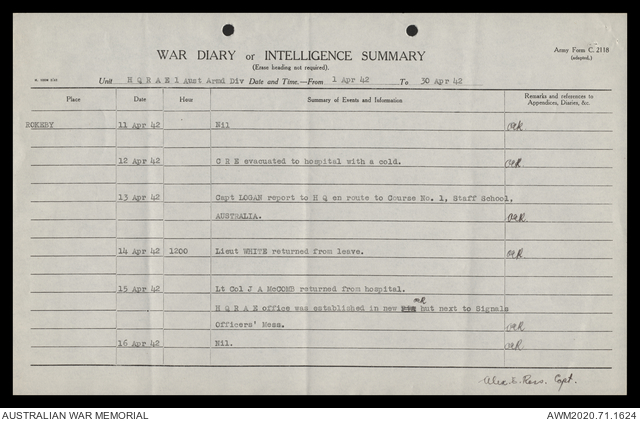 Army Form C. 2118
(adapted.)
WAR DIARY or INTELLIGENCE SUMMARY
(Erase heading not required).
Unit H Q R A E 1 Aust Armd Div Date and Time.—From 1 Apr 42 To 30 Apr 42
Place Date Hour Summary of Events and Information Remarks and references to
Appendices, Diaries, &c.
ROKEBY 11 Apr 42 Nil
12 Apr 42 C R E evacuated to hospital with a cold.
13 Apr 42 Capt LOGAN report to H Q en route to Course No. 1, Staff School,
AUSTRALIA.
14 Apr 42 1200 Lieut WHITE returned from leave.
15 Apr 42 Lt Col J A McCOMB returned from hospital.
H Q R A E office was established in new hut next to Signals
Officers' Mess.
16 Apr 42 Nil.
Capt.
AUSTRALIAN WAR MEMORIAL AWM2020.71.1624